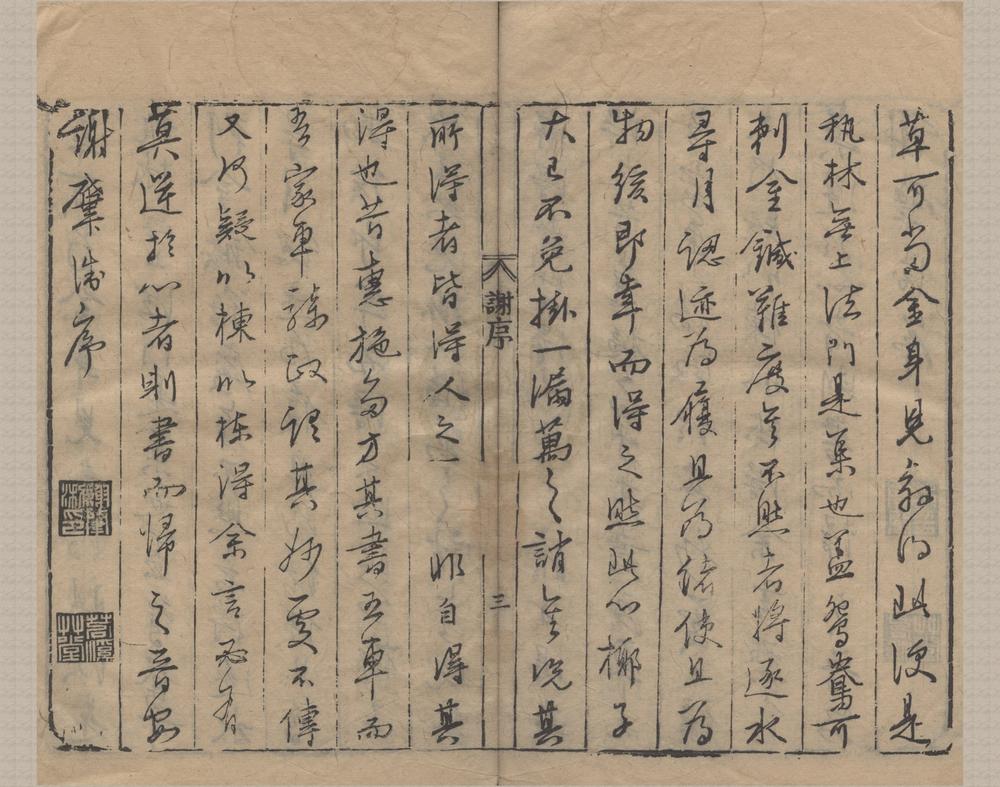 草可當金身見得此便是
秇林無上法門是集也蓋鴛鴦可
刺金鍼難度矣不然者將逐水
尋月認迹為履且為使且為
物役即幸而得之然此心椰子
大已不免掛一漏萬之誚矣況其
謝序
三
所得者皆得人之一 非自得其
得也昔惠施多方其書五車而
吾家車騎政謂其妙處不傳
又何疑以棟以棟得余言必有
莫逆於心者則書而歸之晉安
謝肇淛序
謝肇淛印